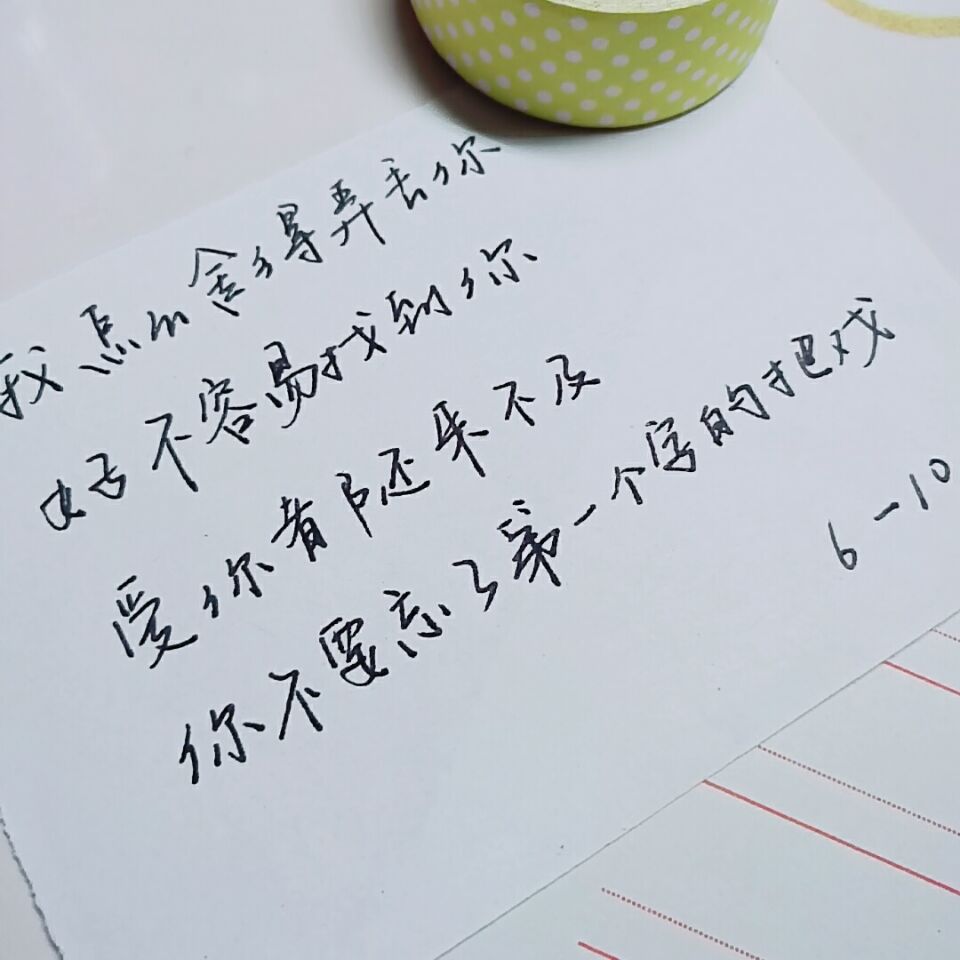 我怎么舍得弄丢你
好不容易找到你
爱你都还来不及
你不要忘了第一个字的把戏
6-10